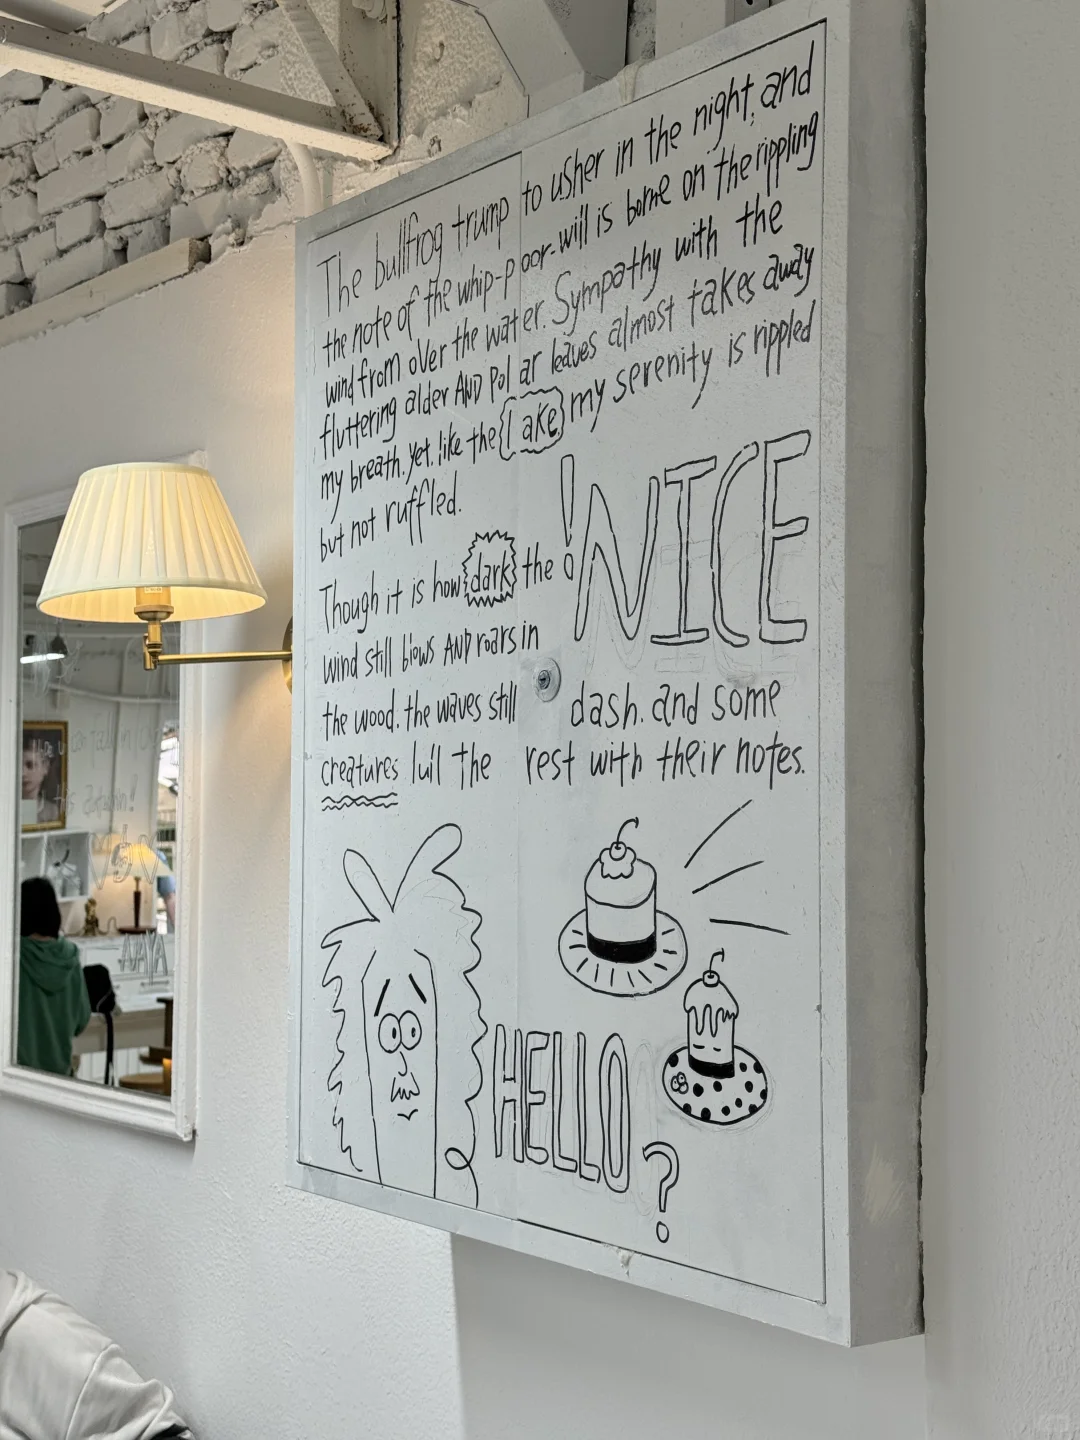 The bullfrog trump to usher in the night, and
the note of the whip-poor-will is borne on the rippling
wind from over the water. Sympathy with the
fluttering alder AND Pol ar leaves almost takes away
my breath. yet. like the lake my serenity is rippled
but not ruffled.
! NICE
Though it is how dark the
wind still blows AND roars in
the wood. the waves still dash. and some
creatures lull the rest with their notes.
HELLO
?